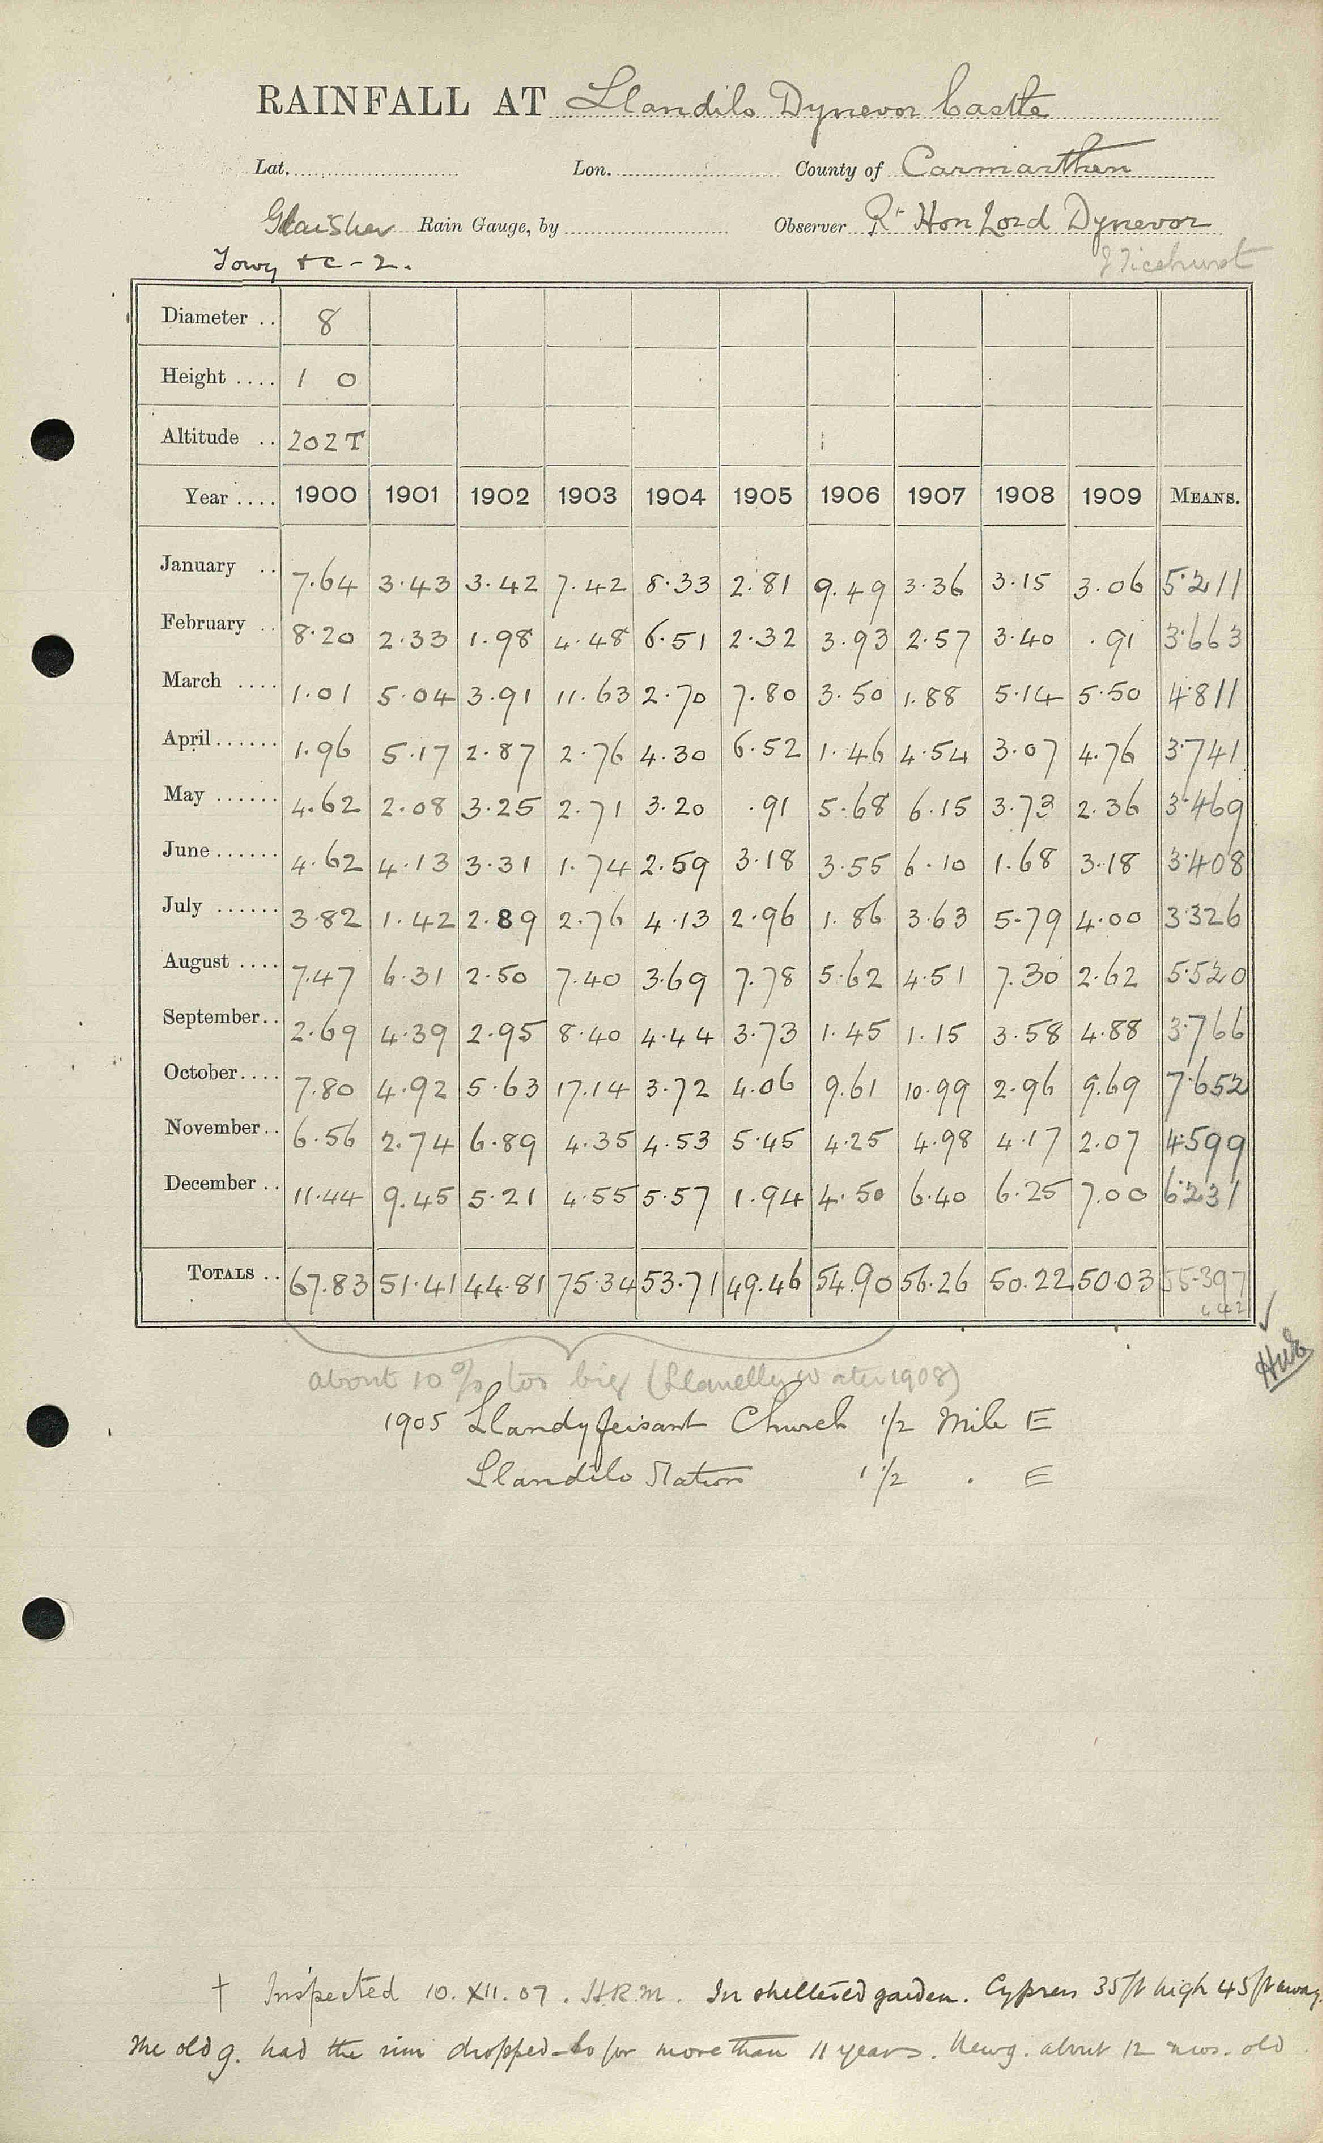 RAINFALL AT Llandilo Dynevor Castle
Lat. Lon. County of Carmarthen
Glaisher Rain Gauge, by Observer Rt Hon Lord Dynevor
Towy &c - 2. J Ticehurst
Diameter .. 8
Height .... 1 0
Altitude .. 202 T
Year .... 1900 1901 1902 1903 1904 1905 1906 1907 1908 1909 MEANS.
January .. 7.64 3.43 3.42 7.42 8.33 2.81 9.49 3.36 3.15 3.06 5.211
February .. 8.20 2.33 1.98 4.48 6.51 2.32 3.93 2.57 3.40 .91 3.663
March .... 1.01 5.04 3.91 11.63 2.70 7.80 3.50 1.88 5.14 5.50 4.811
April...... 1.96 5.17 2.87 2.76 4.30 6.52 1.46 4.54 3.07 4.76 3.741
May ...... 4.62 2.08 3.25 2.71 3.20 .91 5.68 6.15 3.73 2.36 3.469
June...... 4.62 4.13 3.31 1.74 2.59 3.18 3.55 6.10 1.68 3.18 3.408
July ...... 3.82 1.42 2.89 2.76 4.13 2.96 1.86 3.63 5.79 4.00 3.326
August .... 7.47 6.31 2.50 7.40 3.69 7.78 5.62 4.51 7.30 2.62 5.520
September.. 2.69 4.39 2.95 8.40 4.44 3.73 1.45 1.15 3.58 4.88 3.766
October.... 7.80 4.92 5.63 17.14 3.72 4.06 9.61 10.99 2.96 9.69 7.652
November.. 6.56 2.74 6.89 4.35 4.53 5.45 4.25 4.98 4.17 2.07 4.599
December .. 11.44 9.45 5.21 4.55 5.57 1.94 4.50 6.40 6.25 7.00 6.231
TOTALS .. 67.83 51.41 44.81 75.34 53.71 49.46 54.90 56.26 50.22 50.03 55.397
about 10 % too big (Llanelly Water 1908)
1905 Llandyfeisant Church 1/2 Mile E
Llandilo Station 1 1/2 . E
† Inspected 10. XII. 07. H.R.M. In sheltered garden. Cypress 35 ft high 45 ft away.
The old g. had the rim dropped for more than 11 years. New g. about 12 mos. old